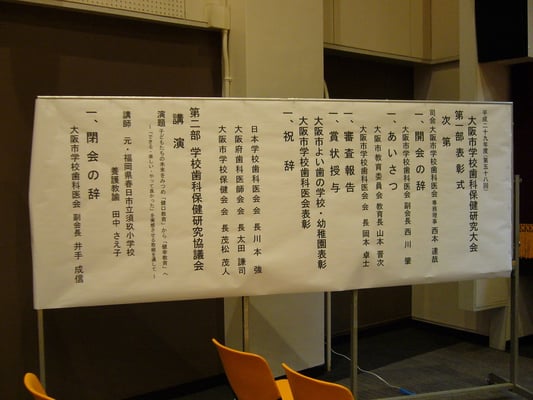 平成二十九年度(第五十八回)
大阪市学校歯科保健研究大会
第一部 表彰式
次第
司会 大阪市学校歯科医会 専務理事 西本 達哉
一、開会の辞
大阪市学校歯科医会 副会長 西川 肇
一、あいさつ
大阪市教育委員会 教育長 山本 晋次
大阪市学校歯科医会 会長 岡本 卓士
一、審査報告
一、賞状授与
大阪市よい歯の学校・幼稚園表彰
大阪市学校歯科医会表彰
一、祝辞
日本学校歯科医会 会長 川本 強
大阪府歯科医師会 会長 太田 謙司
大阪市学校保健会 会長 茂松 茂人
第二部 学校歯科保健研究協議会
講演
演題 子どもたちの未来をみつめ「健口教育」から「健幸教育」へ
~「できる・楽しい・やって良かった」を実感させる取組を通して~
講師 元・福岡県春日市立須玖小学校
養護教諭 田中 さえ子
一、閉会の辞
大阪市学校歯科医会 副会長 井手 成信